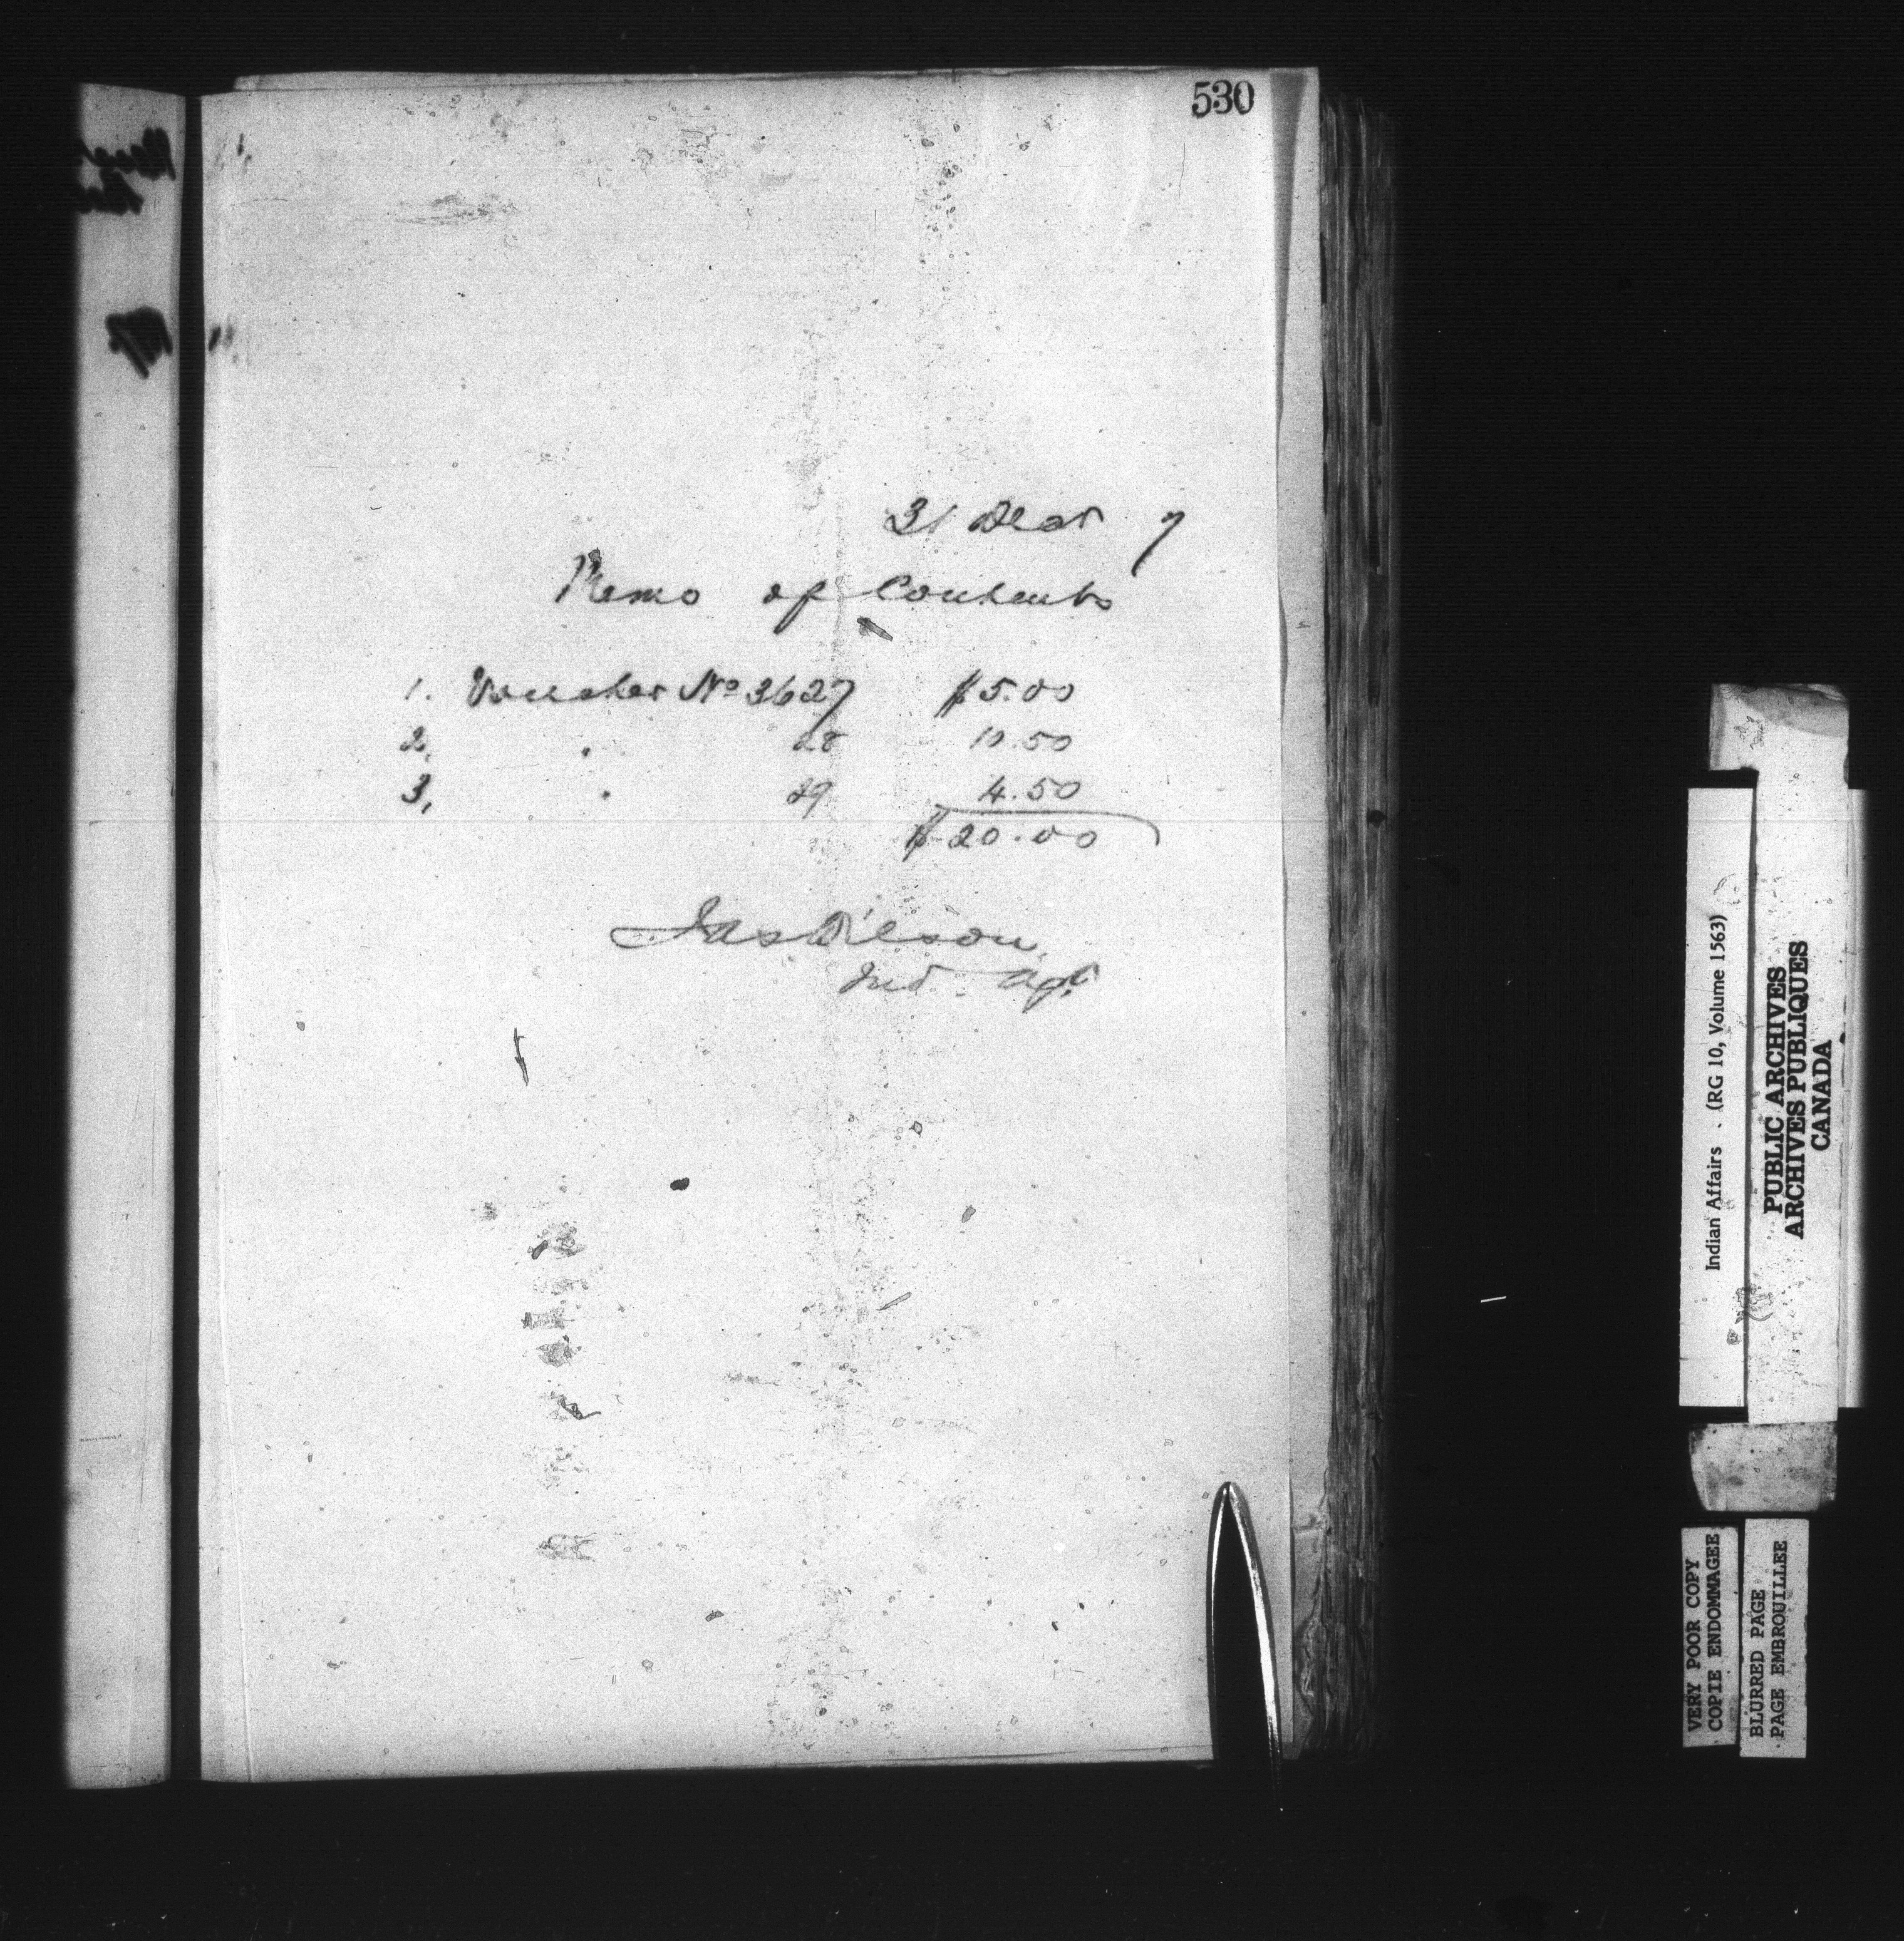 530
31 Decr 7
Memo of Contents
1. Voucher No 3627 $5.00
2. " 28 10.50
3. " 29 4.50
$20.00
Jas Wilson
Ind. Agt.
Indian Affairs . (RG 10, Volume 1563)
PUBLIC ARCHIVES
ARCHIVES PUBLIQUES
CANADA
VERY POOR COPY
COPIE ENDOMMAGEE
BLURRED PAGE
PAGE EMBROUILLEE